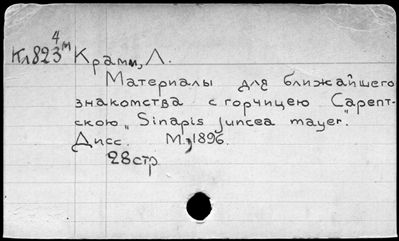 4
Кл823м Крамм, Л.
Материалы для ближайшего
знакомства с горчицею "Сарепт-
скою" Sinapis juncea mayer".
Дисс. М., 1896.
28стр.